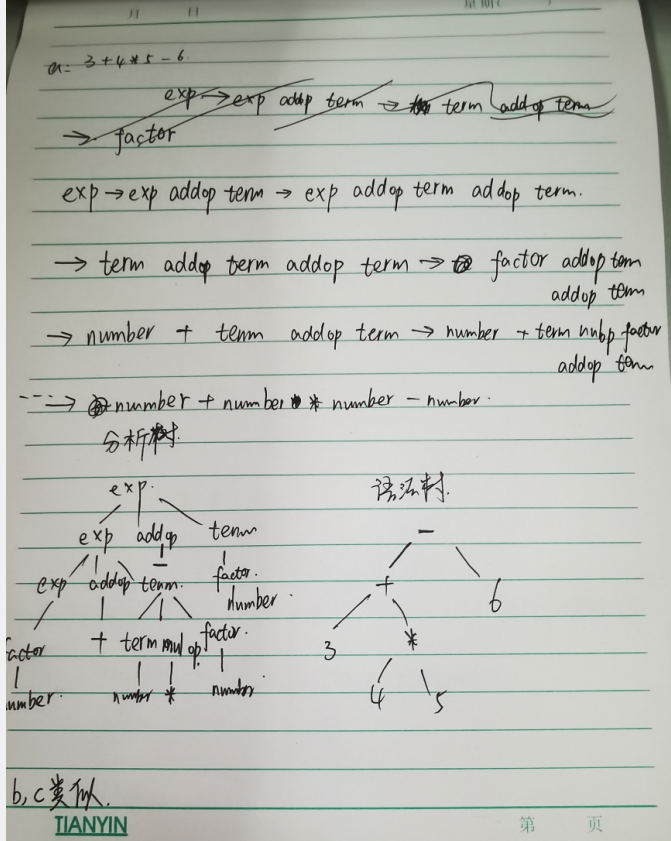 月 日 星期( )
a: 3+4*5-6
exp → exp addop term → term addop term
→ factor
exp → exp addop term → exp addop term addop term.
→ term addop term addop term → factor addop term
addop term
→ number + term addop term → number + term factor
addop term
---→ number + number * number - number.
分析树.
exp. 语法树.
exp addop term -
exp addop term. factor. + 6
- number
factor + term mulop factor. 3 *
number. number * number. 4 5
b, c类似.
TIANYIN 第 页